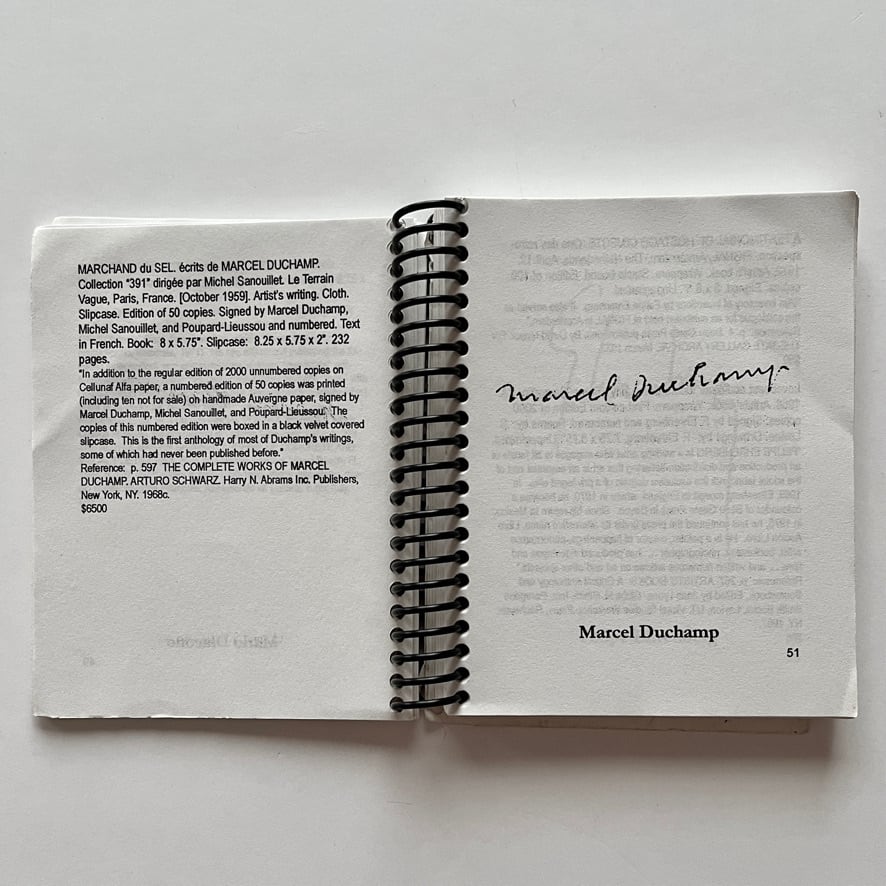 MARCHAND du SEL. écrits de MARCEL DUCHAMP.
Collection "391" dirigée par Michel Sanouillet. Le Terrain
Vague, Paris, France. [October 1959]. Artist's writing. Cloth.
Slipcase. Edition of 50 copies. Signed by Marcel Duchamp,
Michel Sanouillet, and Poupard-Lieussou and numbered. Text
in French. Book: 8 x 5.75". Slipcase: 8.25 x 5.75 x 2". 232
pages.
"In addition to the regular edition of 2000 unnumbered copies on
Cellunaf Alfa paper, a numbered edition of 50 copies was printed
(including ten not for sale) on handmade Auvergne paper, signed by
Marcel Duchamp, Michel Sanouillet, and Poupard-Lieussou. The
copies of this numbered edition were boxed in a black velvet covered
slipcase. This is the first anthology of most of Duchamp's writings,
some of which had never been published before."
Reference: p. 597 THE COMPLETE WORKS OF MARCEL
DUCHAMP. ARTURO SCHWARZ. Harry N. Abrams Inc. Publishers,
New York, NY. 1968c.
$6500
Marcel Duchamp
Marcel Duchamp
51